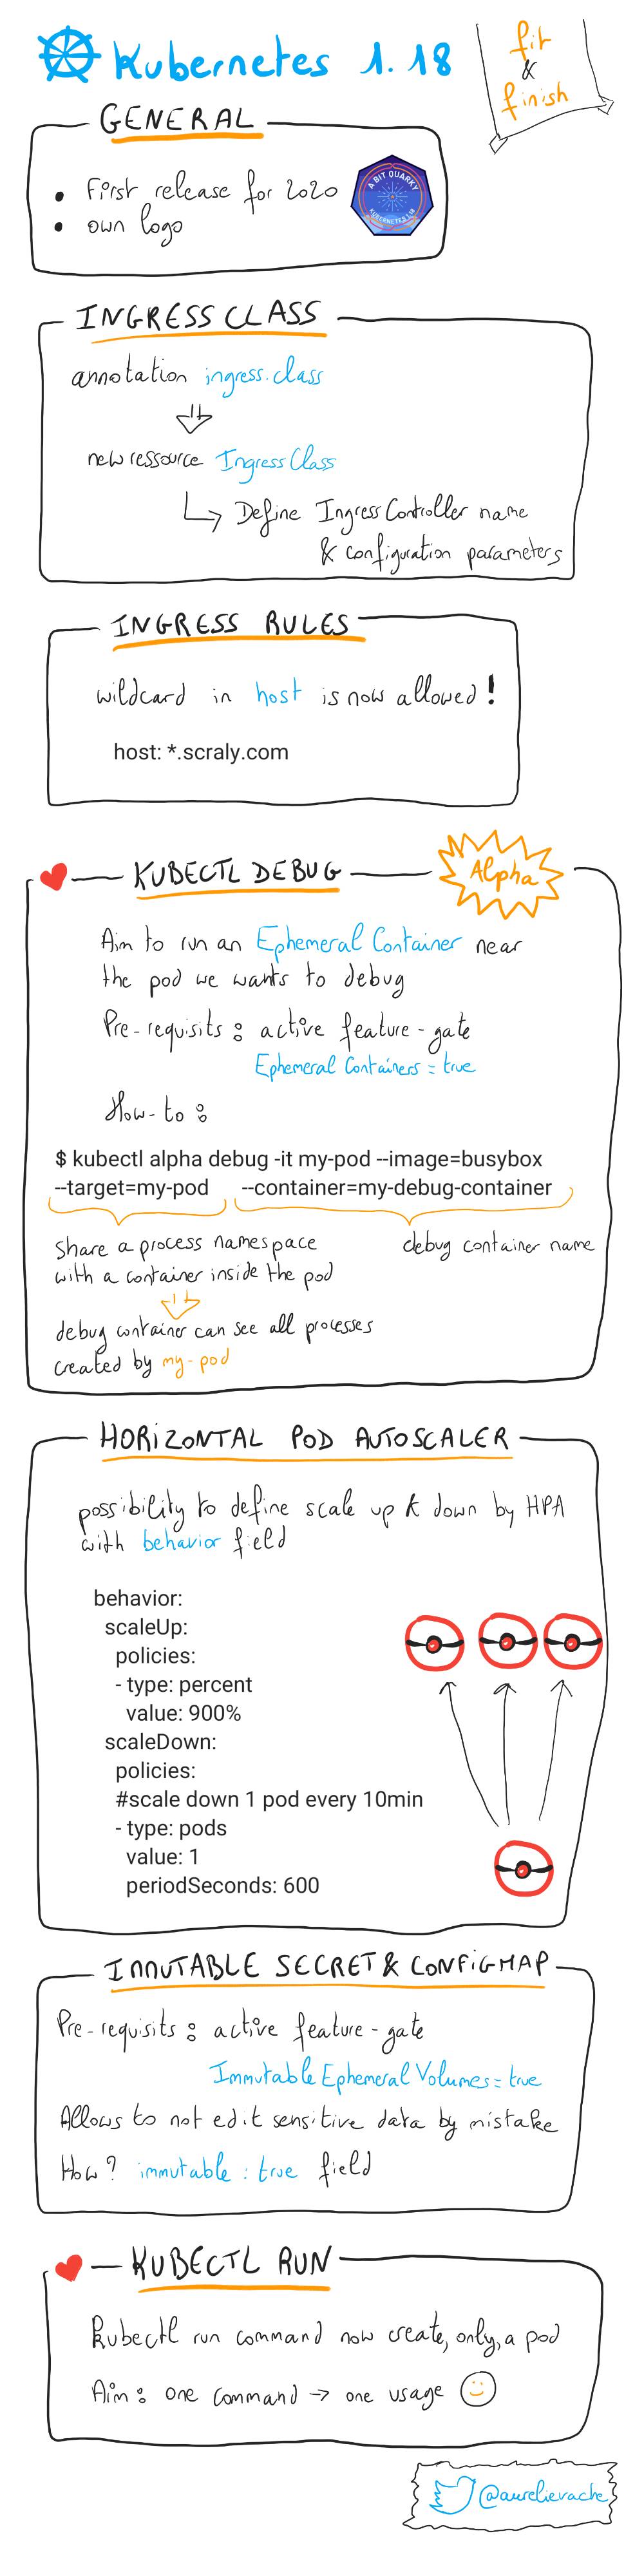 Kubernetes 1.18
fit
&
finish
GENERAL
• First release for 2020
• own logo
A BIT QUARKY
KUBERNETES 1.18
INGRESS CLASS
annotation ingress.class
new ressource IngressClass
Define Ingress Controller name
& configuration parameters
INGRESS RULES
wildcard in host is now allowed!
host: *.scraly.com
KUBECTL DEBUG
Alpha
Aim to run an Ephemeral Container near
the pod we wants to debug
Pre-requisits : active feature-gate
Ephemeral Containers = true
How-to :
$ kubectl alpha debug -it my-pod --image=busybox
--target=my-pod --container=my-debug-container
Share a process namespace
with a container inside the pod
debug container name
debug container can see all processes
created by my-pod
HORIZONTAL POD AUTOSCALER
possibility to define scale up & down by HPA
with behavior field
behavior:
scaleUp:
policies:
- type: percent
value: 900%
scaleDown:
policies:
#scale down 1 pod every 10min
- type: pods
value: 1
periodSeconds: 600
IMMUTABLE SECRET & CONFIGMAP
Pre-requisits : active feature-gate
Immutable Ephemeral Volumes = true
Allows to not edit sensitive data by mistake
How? immutable : true field
KUBECTL RUN
Kubectl run command now create, only, a pod
Aim : one command → one usage
@aurelievache